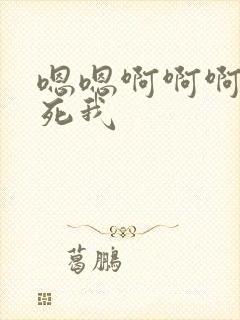 嗯嗯啊啊啊
死我
葛鹏